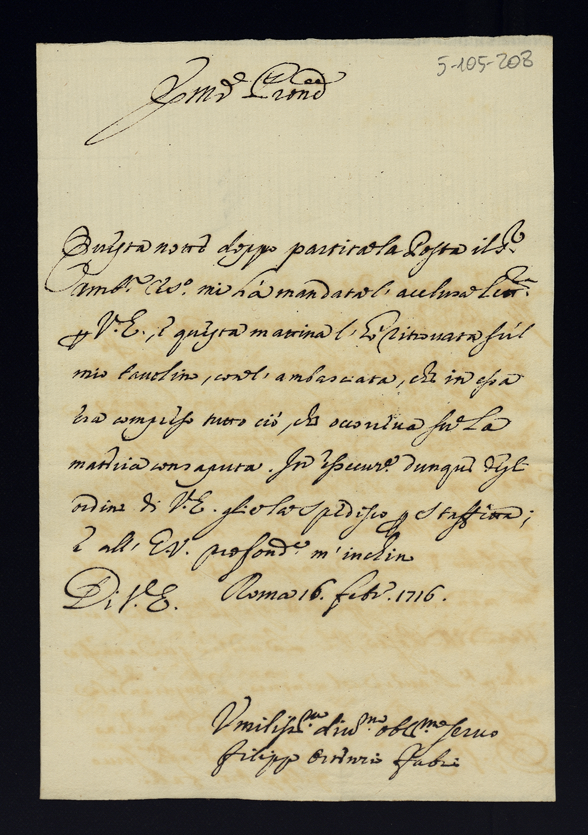 5-105-208
Questa notte doppo partita la Posta il S.r
Camb.e Ces.o mi hà mandata l'acclusa lett.ra
p V.E., e questa mattina l'hò ritrovata sul
mio tavolin, con l'ambasciata, che in essa
era compreso tutto ciò, che occorreva su La
materia consaputa. In essecuz.e dunque degl'
ordini di V.E. glie la spedisco p Staffetta;
e all'E.V. profond.e m'inchin
Di V.E. Roma 16. febr. 1716.
Vmiliss.mo div.mo obl.mo servo
Filippo Fabri